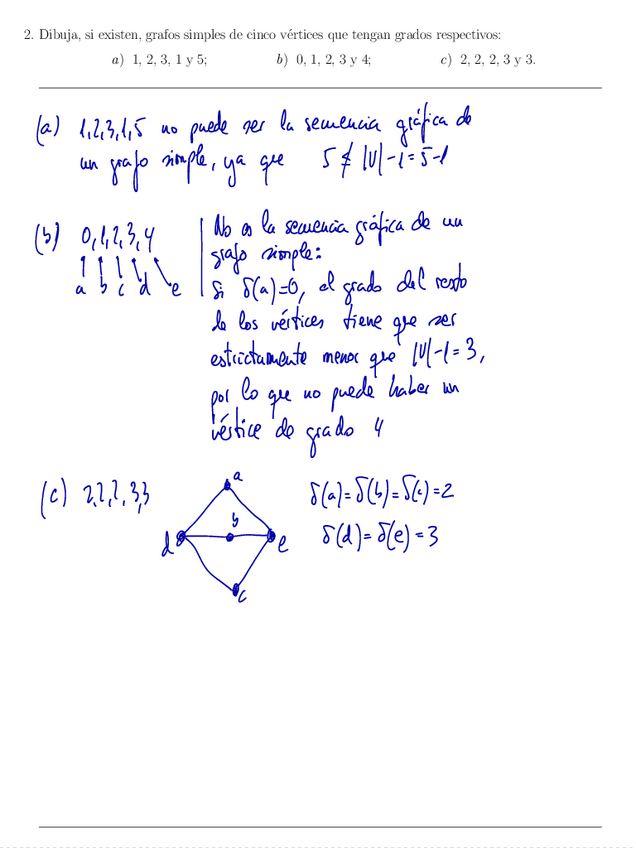 2. Dibuja, si existen, grafos simples de cinco vértices que tengan grados respectivos:
a) 1, 2, 3, 1 y 5; b) 0, 1, 2, 3 y 4; c) 2, 2, 2, 3 y 3.
(a) 1,2,3,1,5 no puede ser la secuencia gráfica de
un grafo simple, ya que 5 ≰ |V|-1=5-1
(b) 0,1,2,3,4
a b c d e
No es la secuencia gráfica de un
grafo simple:
Si δ(a)=0, el grado del resto
de los vértices tiene que ser
estrictamente menor que |V|-1=3,
por lo que no puede haber un
vértice de grado 4
(c) 2,2,2,3,3
a
b
d
e
c
δ(a)=δ(b)=δ(c)=2
δ(d)=δ(e)=3